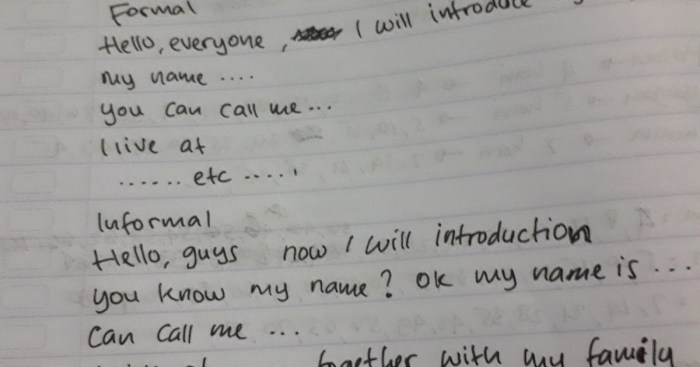 Formal
Hello, everyone, I will introduce
My name ....
you can call me ...
I live at
...... etc .....
Informal
Hello, guys now I will introduction
you know my name? ok my name is ...
can call me ...
together with my family